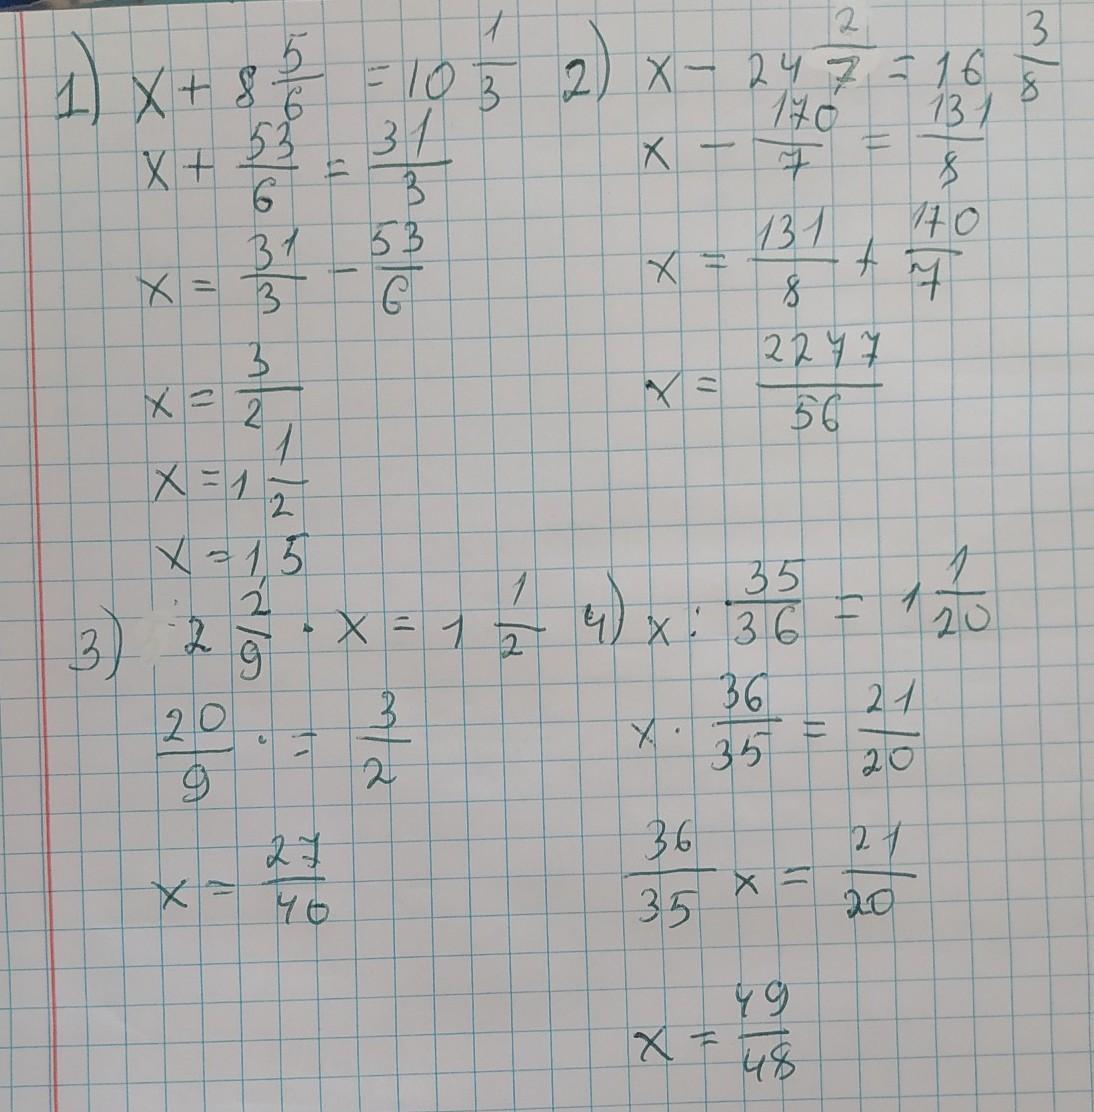 1) x + 8 5/6 = 10 1/3
x + 53/6 = 31/3
x = 31/3 - 53/6
x = 3/2
x = 1 1/2
x = 1,5
2) x - 24 2/7 = 16 3/8
x - 170/7 = 131/8
x = 131/8 + 170/7
x = 2277/56
3) 2 2/9 · x = 1 1/2
20/9 · = 3/2
x = 27/40
4) x : 35/36 = 1 1/20
x · 36/35 = 21/20
36/35 x = 21/20
x = 49/48